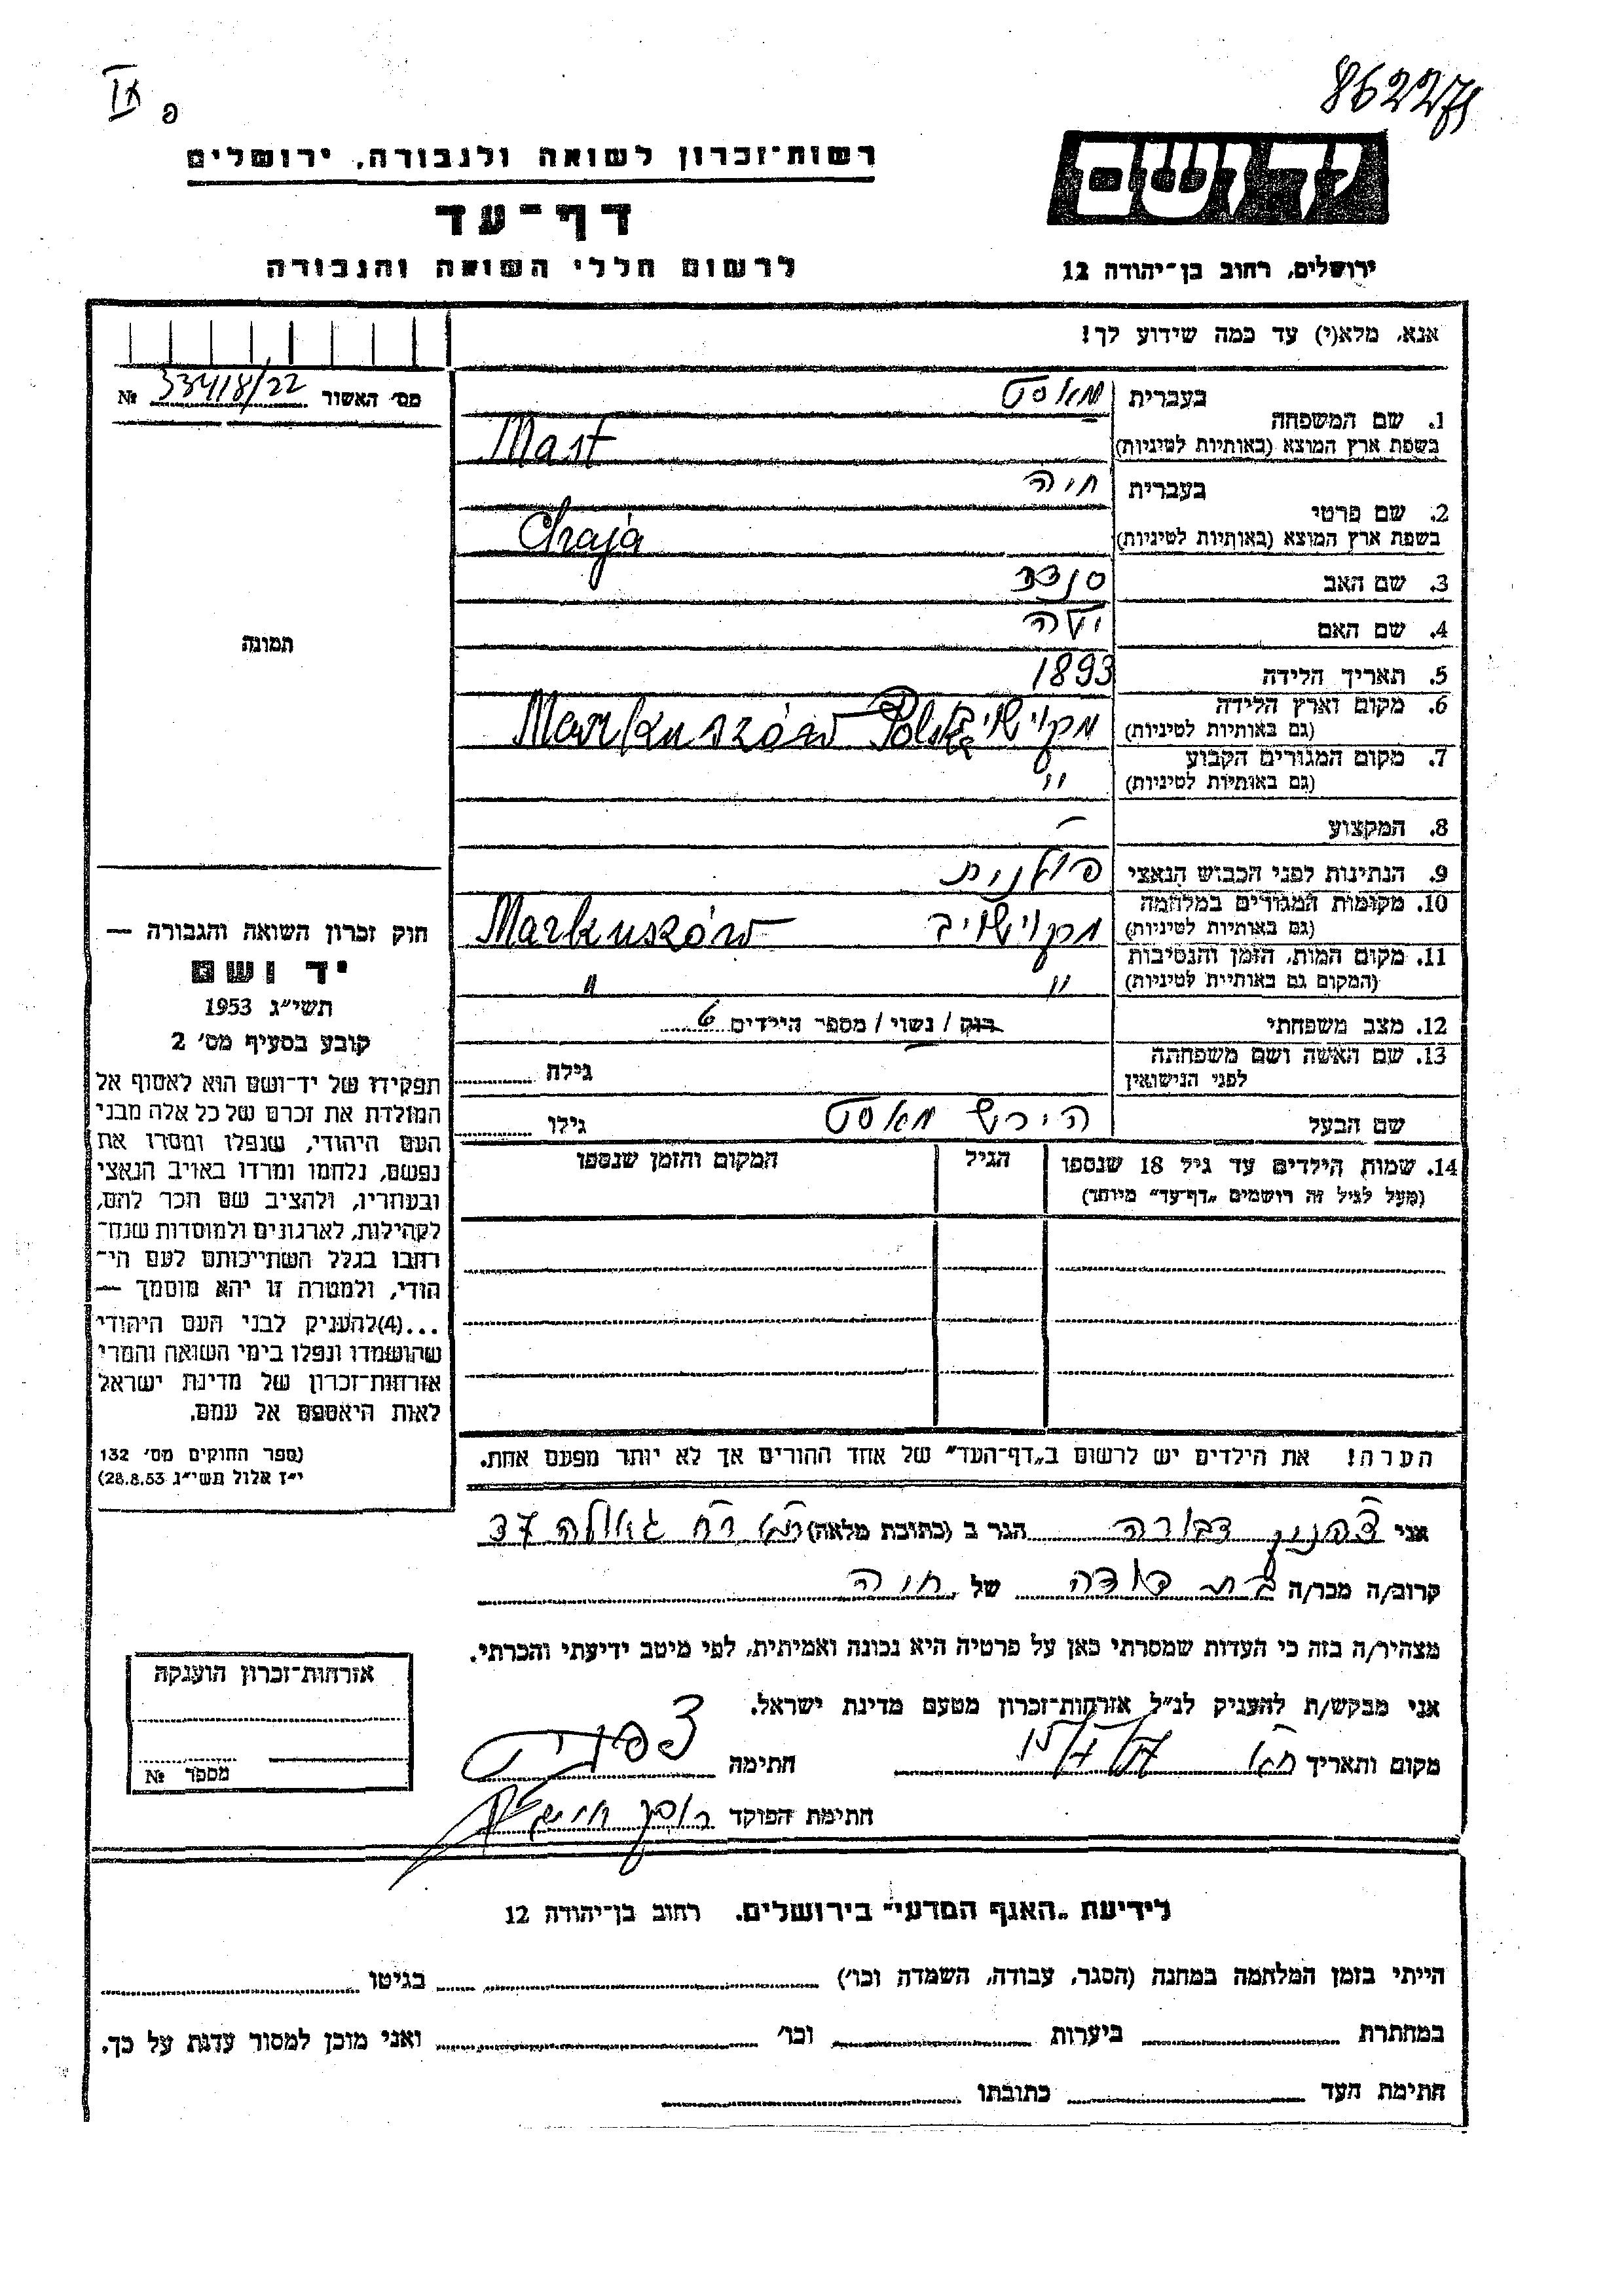 862275
רשות־זכרון לשואה ולגבורה, ירושלים
דף־עד
לרשום חללי השואה והגבורה
יד ושם
ירושלים, רחוב בן־יהודה 12
אנא, מלא(י) עד כמה שידוע לך!
מס׳ האשור № 33418/22
בעברית מאסט
1. שם המשפחה
בשפת ארץ המוצא (באותיות לטיניות) Mast
בעברית חיה
2. שם פרטי
בשפת ארץ המוצא (באותיות לטיניות) Chaja
3. שם האב
4. שם האם
5. תאריך הלידה 1893
6. מקום וארץ הלידה
(גם באותיות לטיניות) Markuszów Polska
7. מקום המגורים הקבוע
(גם באותיות לטיניות) "
8. המקצוע –
9. הנתינות לפני הכבוש הנאצי פולנית
10. מקומות המגורים במלחמה
(גם באותיות לטיניות) Markuszów
11. מקום המות, הזמן והנסיבות
(המקום גם באותיות לטיניות) " "
12. מצב משפחתי רוק / נשוי / מספר הילדים 6
13. שם האשה ושם משפחתה
לפני הנישואין גילה
שם הבעל הירש מאסט גילו
14. שמות הילדים עד גיל 18 שנספו הגיל המקום והזמן שנספו
(מעל לגיל זה רושמים „דף־עד" מיוחד)
הערה! את הילדים יש לרשום ב„דף־העד" של אחד ההורים אך לא יותר מפעם אחת.
תמונה
חוק זכרון השואה והגבורה —
יד ושם
תשי"ג 1953
קובע בסעיף מס׳ 2
תפקידו של יד־ושם הוא לאסוף אל
המולדת את זכרם של כל אלה מבני
העם היהודי, שנפלו ומסרו את
נפשם, נלחמו ומרדו באויב הנאצי
ובעוזריו, ולהציב שם וזכר להם,
לקהילות, לארגונים ולמוסדות שנח־
רבו בגלל השתייכותם לעם הי־
הודי, ולמטרה זו יהא מוסמך —
...(4)להעניק לבני העם היהודי
שהושמדו ונפלו בימי השואה והמרי
אזרחות־זכרון של מדינת ישראל
לאות היאספם אל עמם.
(ספר החוקים מס׳ 132
י"ז אלול תשי"ג 28.8.53)
אני דבורה הגר ב (כתובת מלאה) רח גאולה 37
קרוב/ה מכר/ה בת דודה של חיה
מצהיר/ה בזה כי העדות שמסרתי כאן על פרטיה היא נכונה ואמיתית, לפי מיטב ידיעתי והכרתי.
אני מבקש/ת להעניק לנ"ל אזרחות־זכרון מטעם מדינת ישראל.
מקום ותאריך חתימה
חתימת הפוקד
אזרחות־זכרון הוענקה
מספר №
לידיעת „האגף המדעי" בירושלים. רחוב בן־יהודה 12
הייתי בזמן המלחמה במחנה (הסגר, עבודה, השמדה וכו׳) בגיטו
במחתרת ביערות וכו׳ ואני מוכן למסור עדות על כך.
חתימת העד כתובתו